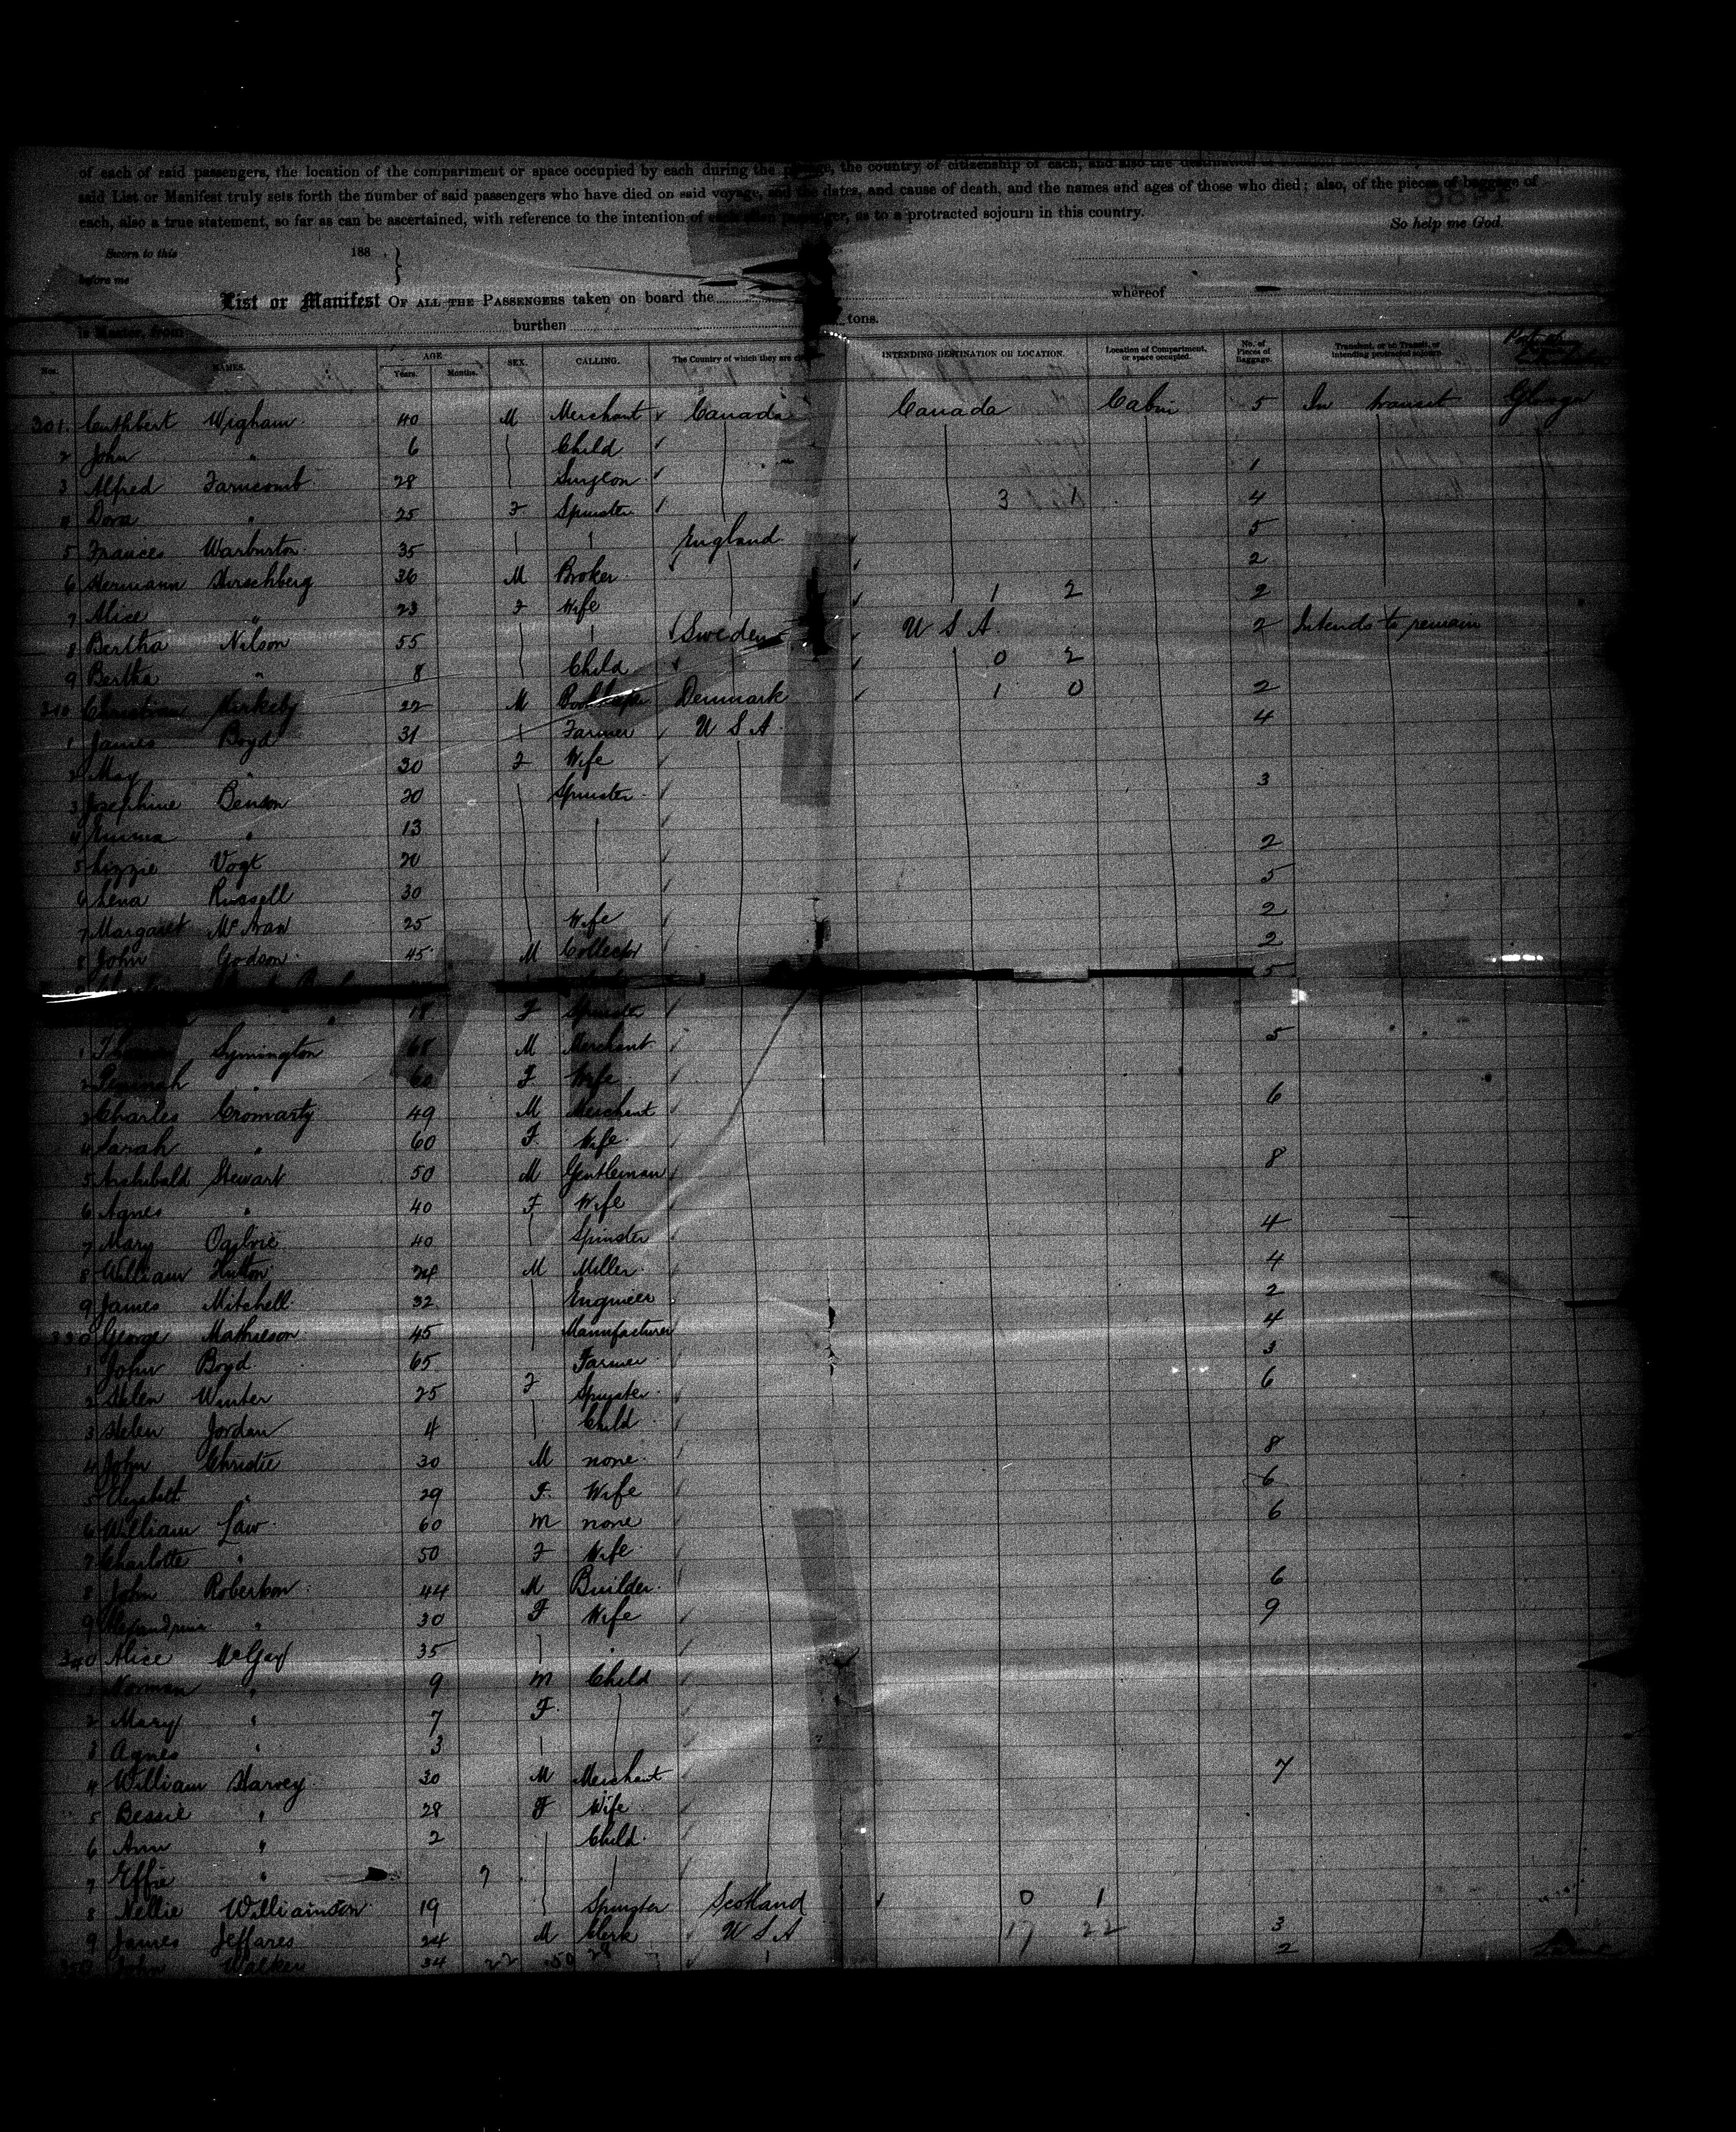 of each of said passengers, the location of the compartment or space occupied by each during the the country of citizenship of each, and also the destination
said List or Manifest truly sets forth the number of said passengers who have died on said voyage, and the dates, and cause of death, and the names and ages of those who died; also, of the pieces of baggage of
each, also a true statement, so far as can be ascertained, with reference to the intention of each alien passenger, as to a protracted sojourn in this country.
So help me God.
Sworn to this 188 .
before me
List or Manifest OF ALL THE PASSENGERS taken on board the whereof
is Master, from burthen tons.
Nos. NAMES. AGE. Years. Months. SEX. CALLING. The Country of which they are INTENDING DESTINATION OR LOCATION. Location of Compartment, or space occupied. No. of Pieces of Baggage. Transient, or in Transit, or intending protracted sojourn.
301. Cuthbert Wigham 40 M Merchant Canada Canada Cabin 5 In transit
2 John " 6 Child
3 Alfred Farncomb 28 Surgeon 1
4 Dora " 25 F Spinster 3 1 4
5 Frances Warburton 35 England 5
6 Hermann Hirschberg 36 M Broker 2
7 Alice " 23 F Wife 1 2 2
8 Bertha Nilson 55 Sweden U S A 2 Intends to remain
9 Bertha " 8 Child 0 2
310 Christian Kirkeby 22 M Denmark 1 0 2
1 James Boyd 31 Farmer U S A 4
2 May " 30 F Wife
3 Josephine Benson 20 Spinster 3
4 Emma " 13
5 Lizzie Vogt 20 2
6 Lena Russell 30 5
7 Margaret 25 Wife 2
8 John Godson 45 M Collector 2
5
18 F Spinster
1 Symington M Merchant 5
2 " 60 F Wife
3 Charles Cromarty 49 M Merchant 6
4 Sarah " 60 F Wife
5 Archibald Stewart 50 M Gentleman 8
6 Agnes " 40 F Wife
7 Mary Ogilvie 40 Spinster 4
8 William Hutton 24 M Miller 4
9 James Mitchell 32 Engineer 2
330 George Mathieson 45 Manufacturer 4
1 John Boyd 65 Farmer 3
2 Helen Winter 25 F Spinster 6
3 Helen Jordan 4 Child
4 John Christie 30 M none 8
5 Elizabeth " 29 F Wife 6
6 William Law 60 M none 6
7 Charlotte " 50 F Wife
8 John Robertson 44 M Builder 6
9 Alexandrina " 30 F Wife 9
340 Alice McGaw 35
1 Norman " 9 M Child
2 Mary " 7 F
3 Agnes " 3
4 William Harvey 30 M Merchant 7
5 Bessie " 28 F Wife
6 Ann " 2 Child
7 Effie " 7
8 Nellie Williamson 19 Spinster Scotland 0 1
9 James Jeffares 24 M Clerk U S A 17 22 3
350 John Walker 34 22 50 28 2